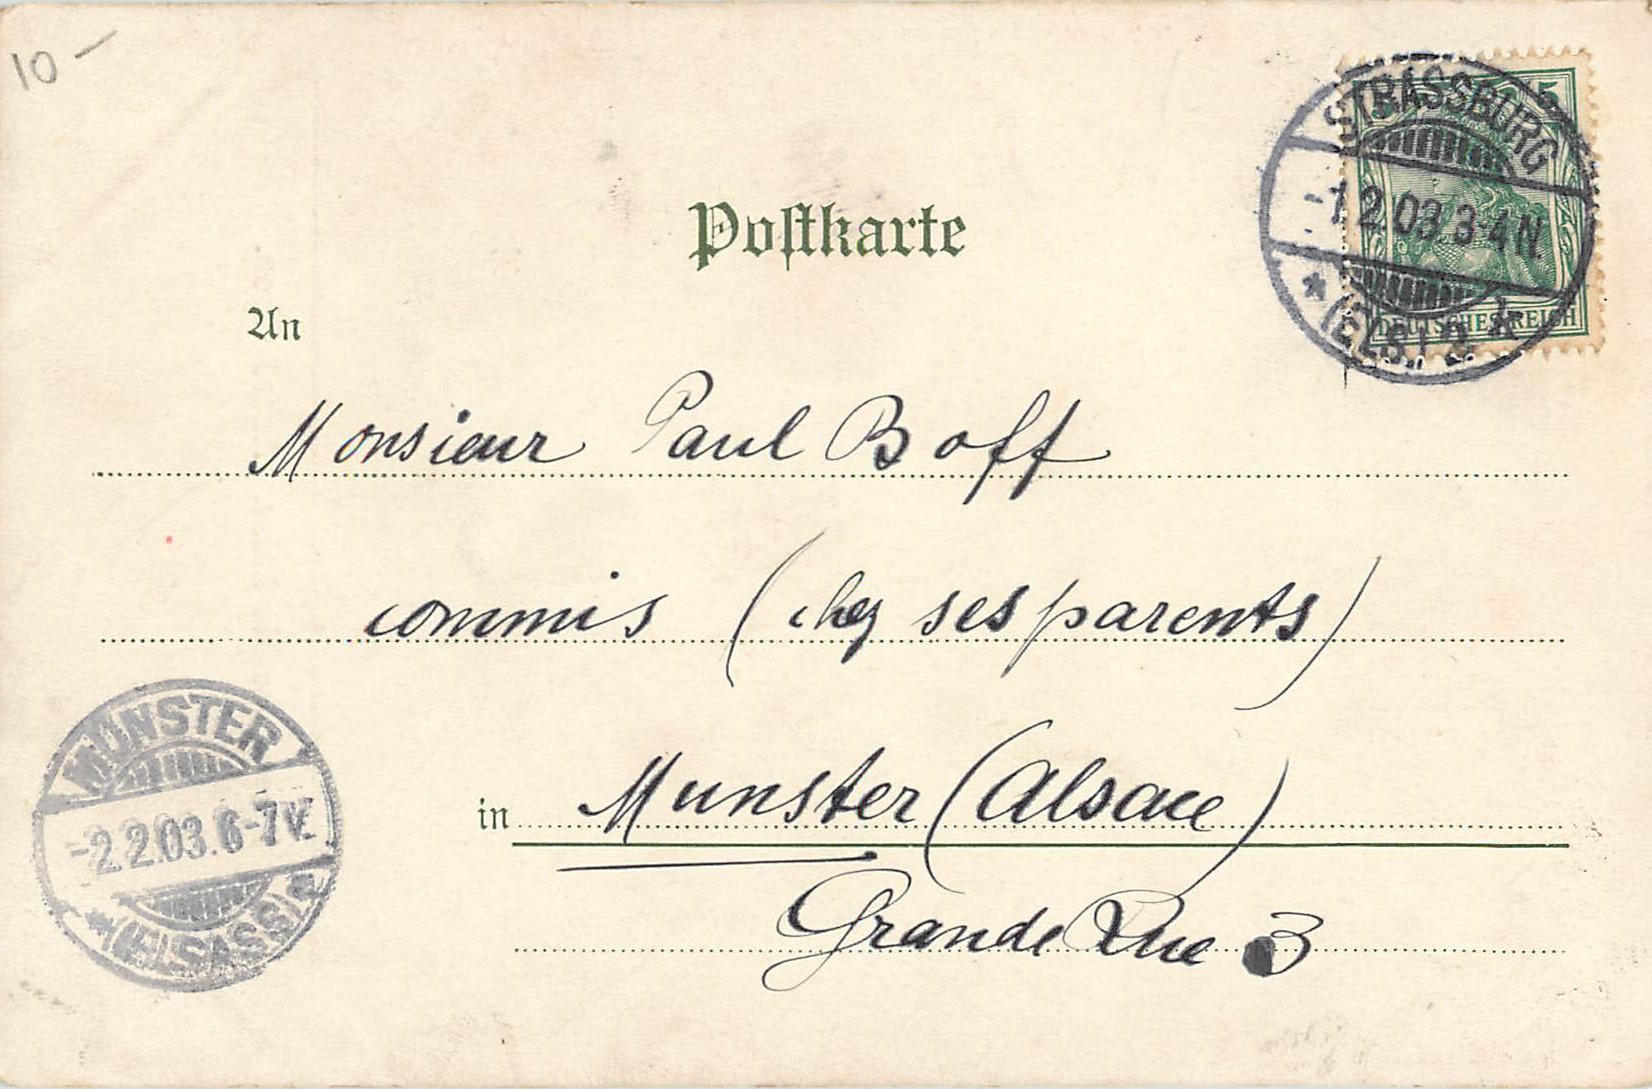 10 -
5 5
STRASSBURG
-1.2.03.3-4N.
* (ELS.) 1 k
DEUTSCHES REICH
Postkarte
An
Monsieur Paul Boff
commis (chez ses parents)
in Munster (Alsace)
Grande Rue 3
MÜNSTER
-2.2.03.6-7V.
* (ELSASS) a